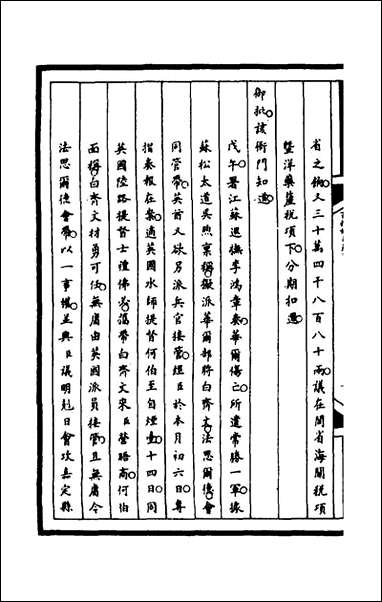 省之餉又三十萬四千八百八十兩議在閩省海關稅項
暨洋藥釐稅項下分期扣還
御批該衙門知道
戊午署江蘇巡撫李鴻章奏華爾傷亡所遺常勝一軍據
蘇松太道吳煦稟稱檄派華爾部將白齊文法思爾德會
同管帶英酋又欲另派兵官接管煙臣於本月初六日專
摺奏報在案適英國水師提督何伯至自煙臺十四日同
英國陸路提督士禮佛必偈帶白齊文來臣營路商何伯
面稱白齊文材勇可任無庸由英國派員接管且無庸令
法思爾德會帶以一事權並與臣議明剋日會攻嘉定縣